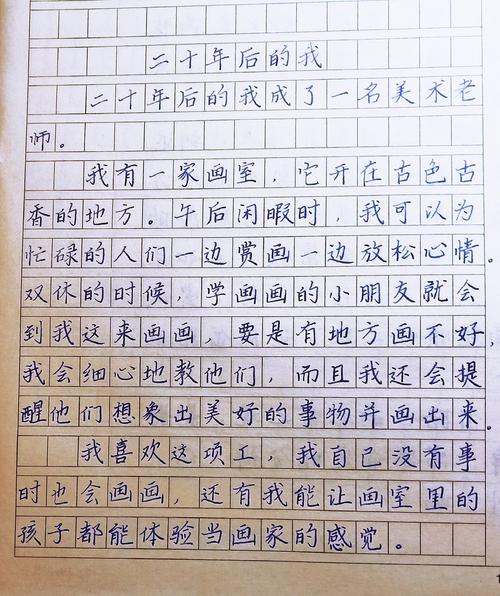 二十年后的我
二十年后的我成了一名美术老
师。
我有一家画室，它开在古色古
香的地方。午后闲暇时，我可以为
忙碌的人们一边赏画一边放松心情。
双休的时候，学画画的小朋友就会
到我这来画画，要是有地方画不好，
我会细心地教他们，而且我还会提
醒他们想象出美好的事物并画出来。
我喜欢这项工，我自己没有事
时也会画画，还有我能让画室里的
孩子都能体验当画家的感觉。